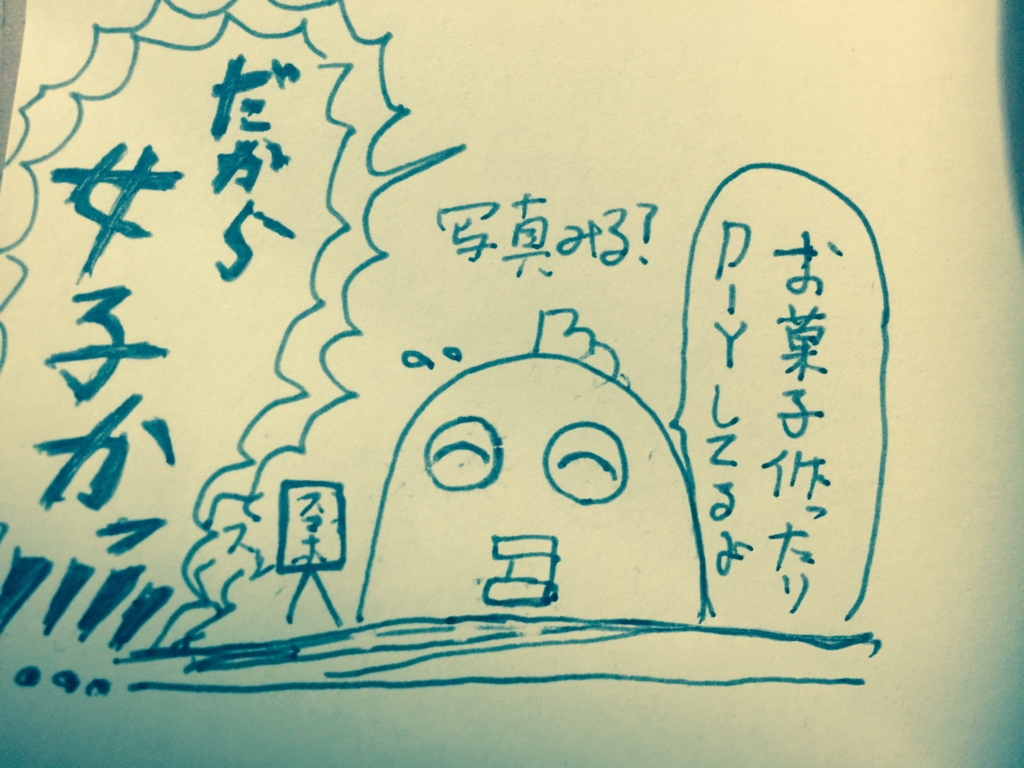 お菓子作ったり
DIYしてるよ
写真みる?
スマホ
スッ
だから
女子かっ